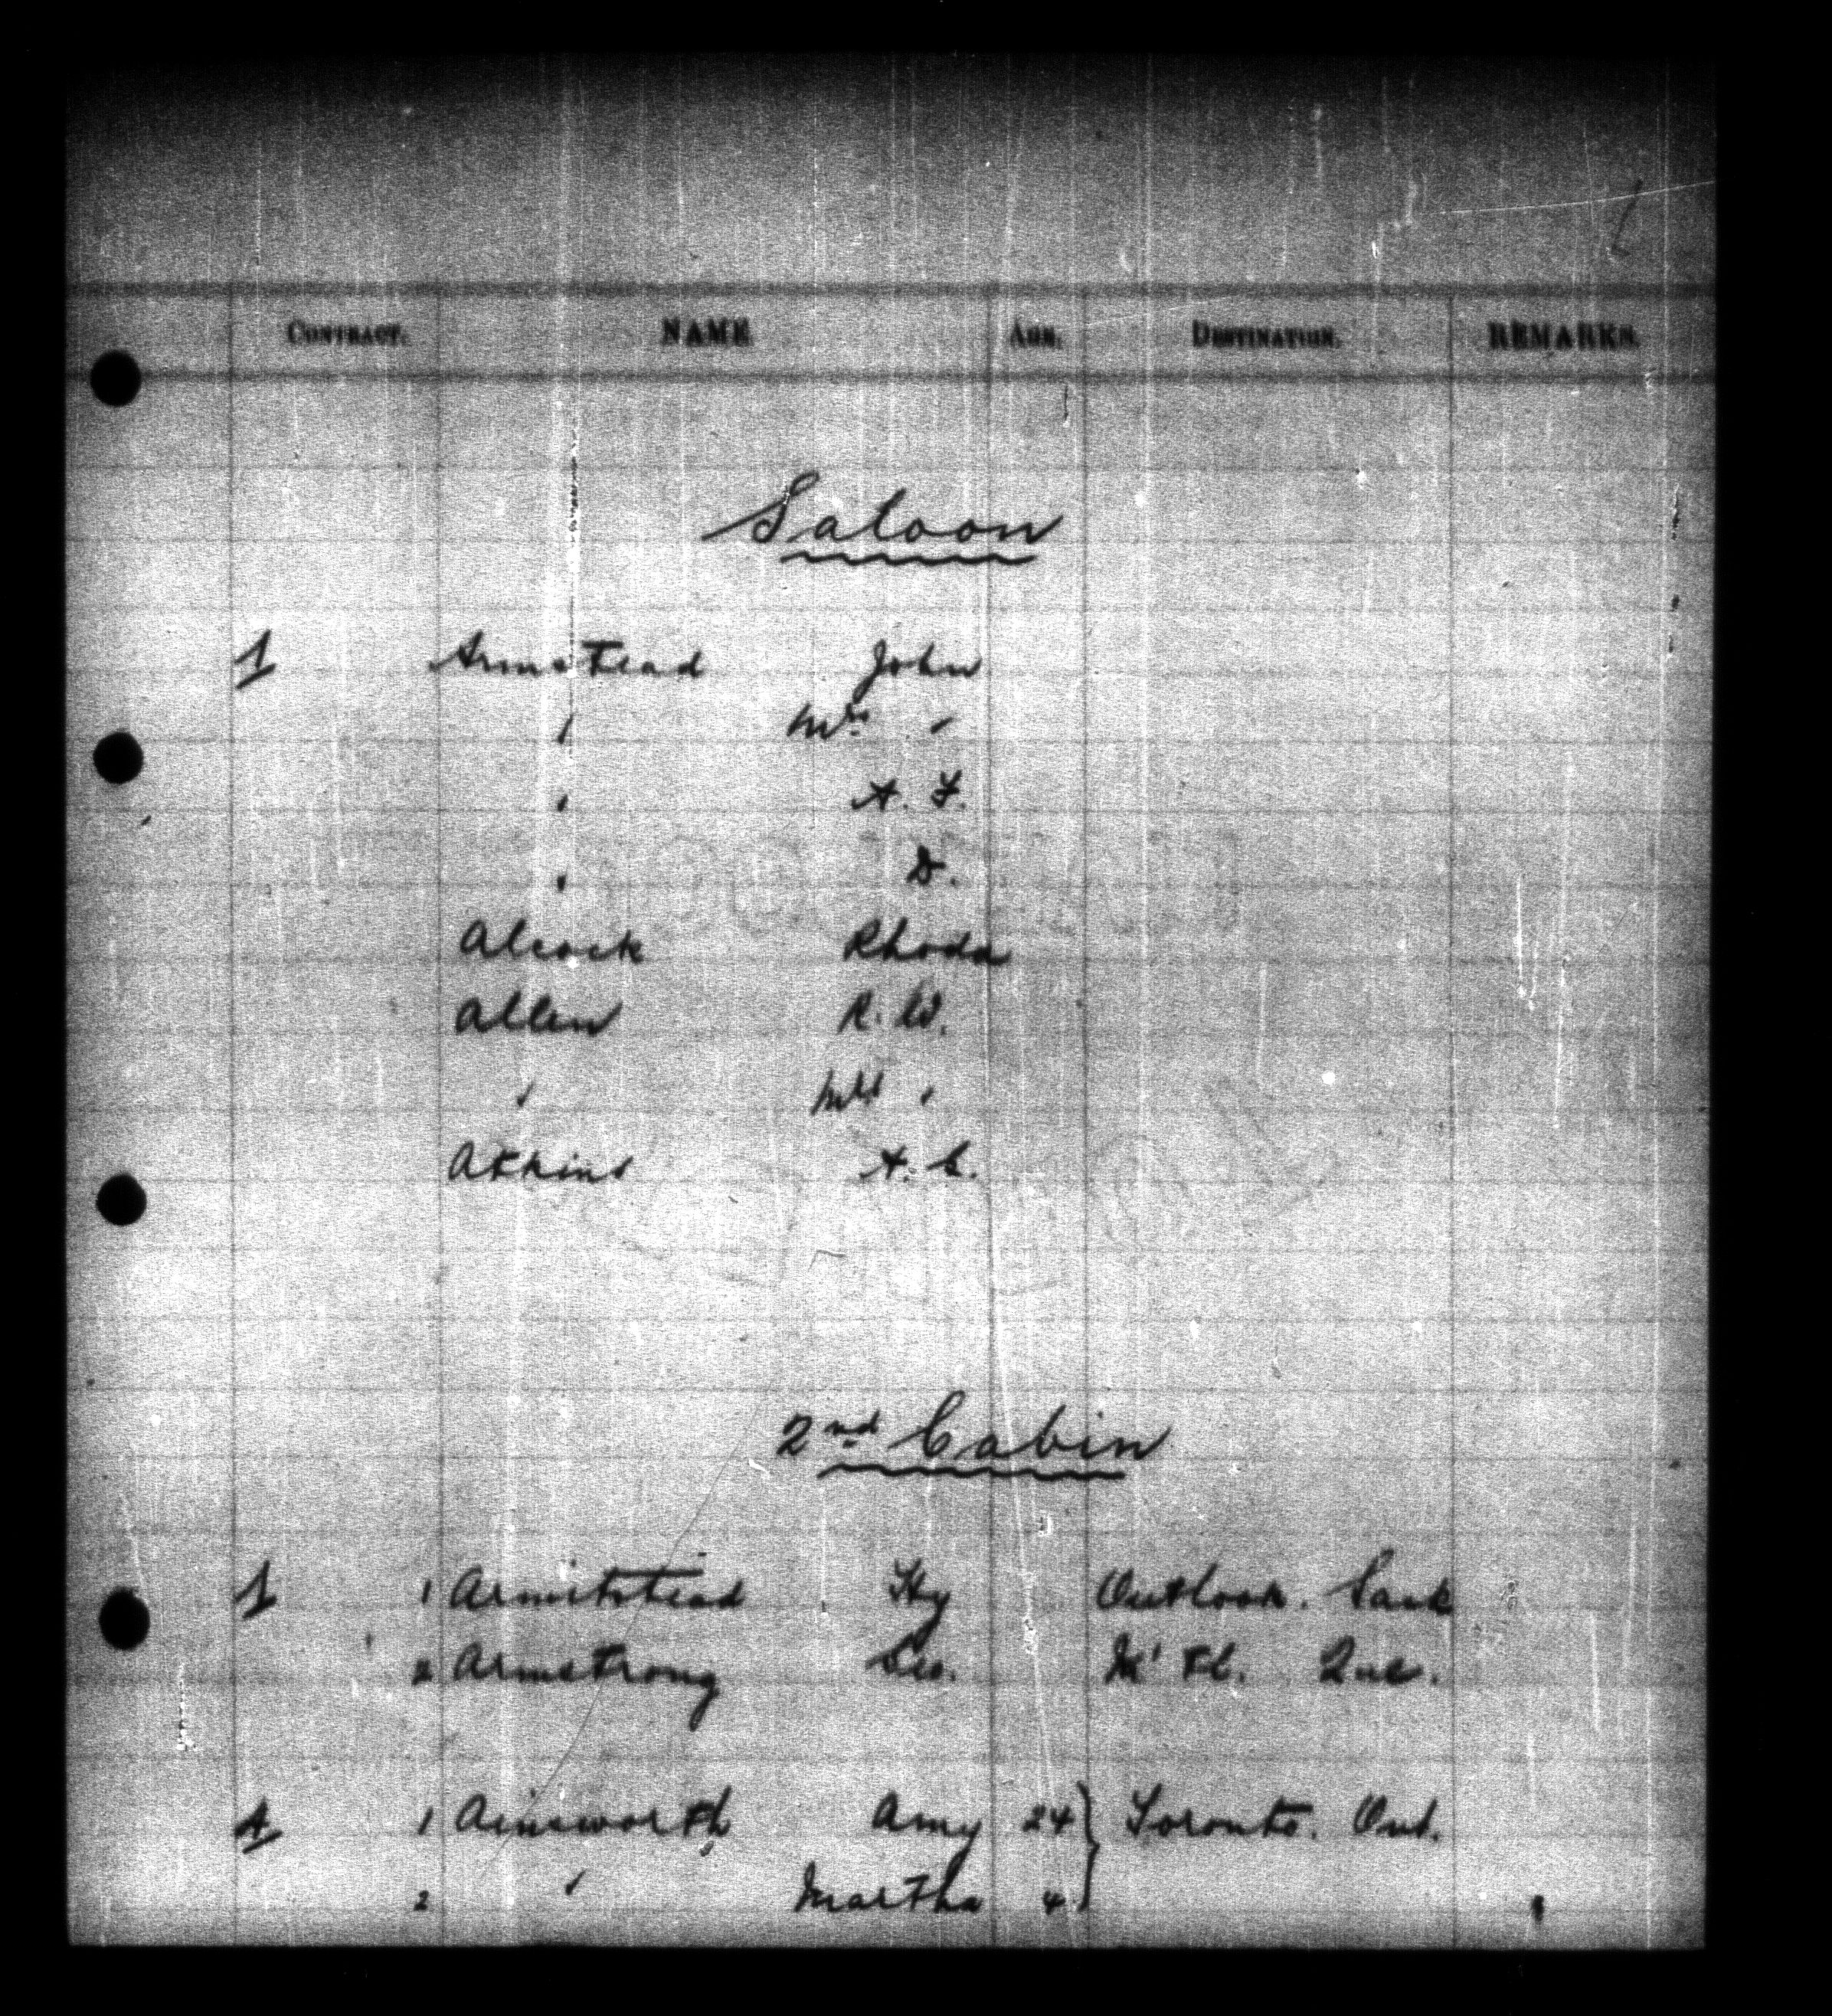 CONTRACT. NAME AGE. DESTINATION. REMARKS.
Saloon
Armstead John
" Mrs "
" A. F.
" D.
Alcock Rhoda
Allen R. W.
" Mrs "
Atkins A. G.
2nd Cabin
1 Armitstead Hy Outlook. Sask
2 Armstrong Geo. M'tl. Que.
1 Ainsworth Amy 24 } Toronto. Ont.
2 " Martha 4